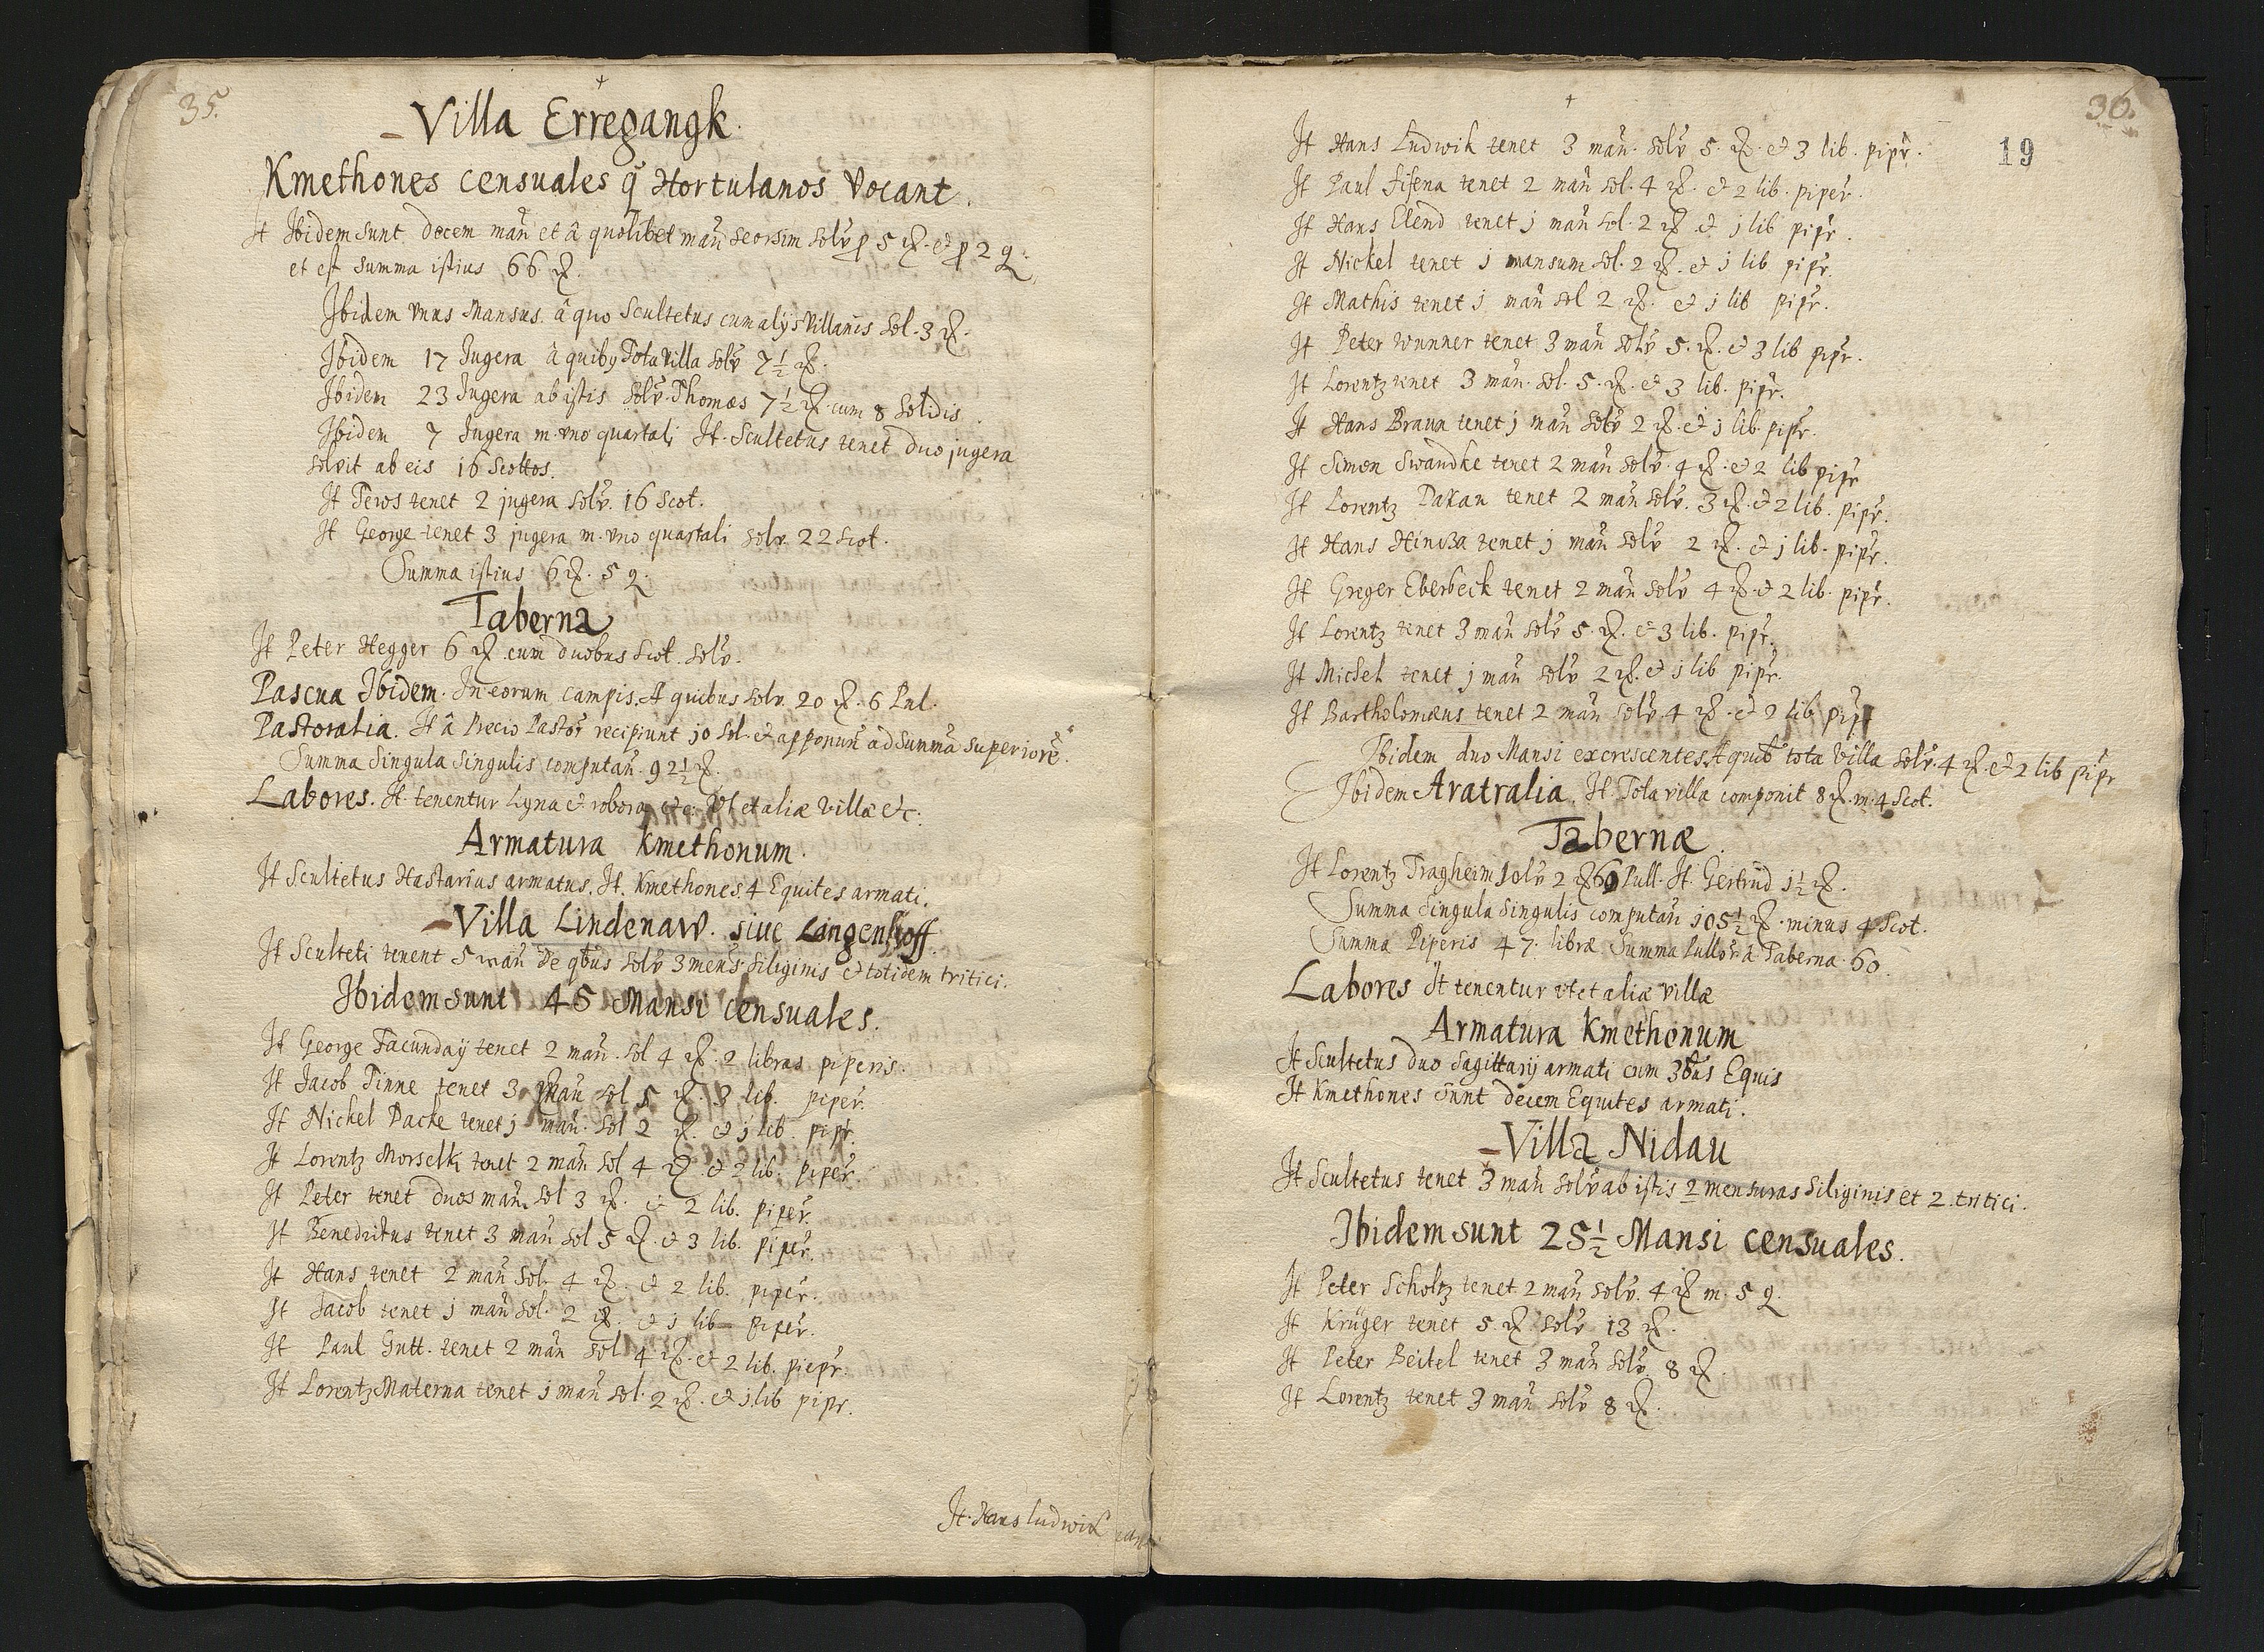 35.
Villa Erregangk.
Kmethones censuales q̃ Hortulanos vocant.
It Ibidem sunt decem mañ et â quolibet mañ seorsim solṽ p 5 ℞. et p 2 q.
et est summa istius 66 ℞.
Ibidem vnus Mansus. â quo Scultetus cum alijs Villanis sol. 3 ℞.
Ibidem 17 Jugera â quiby Tota Villa solṽ 7½ ℞.
Ibidem 23 Jugera ab istis solṽ. Thomas 7½ ℞. cum 8 solidis.
Ibidem 7 Jugera m. vno quartali It. Scultetus tenet duo jugera
solvit ab eis 16 Scottos.
It Tews tenet 2 jugera solṽ. 16 Scot.
It George tenet 3 jugera m. vno quartali solv. 22 Scot.
Summa istius 6 ℞. 5 q.
Taberna
It Peter Hegger 6 ℞ cum duobus Scot. solṽ.
Pascua Ibidem. In eorum campis. A quibus solv. 20 ℞. 6 Pul.
Pastoralia. It â Precio Pastor̃ recipiunt 10 sol. et apponunt̃ ad summã superiorẽ.
Summa singula singulis computañ. 92½ ℞.
Labores. It tenentur ligna et robora etc. Vt et aliæ villæ etc:
Armatura Kmethonum.
It Scultetus Hastarius armatus. It. Kmethones 4 Equites armati.
Villa Lindenaw. siue Langenhoff.
It Sculteti tenent 5 mañ de qb̃us solṽ 3 mens̃ Siliginis et totidem tritici.
Ibidem sunt 45 Mansi censuales.
It George Facundaÿ tenet 2 mañ. sol 4 ℞. 2 libras piperis.
It Jacob Tinne tenet 3 mañ sol 5 ℞. 3 lib. piper̃.
It Nichel Packe tenet j mañ. sol 2 ℞. et j lib. pip̃r.
It Lorentz Morselki tenet 2 mañ sol 4 ℞. et 2 lib. piper̃
It Peter tenet duos mañ. sol 3 ℞. et 2 lib. piper̃.
It Benedictus tenet 3 mañ sol 5 ℞. et 3 lib. piper̃.
It Hans tenet 2 mañ sol. 4 ℞. et 2 lib. piper̃.
It Jacob tenet j mañ sol. 2 ℞. et j lib piper̃.
It Paul Gutt. tenet 2 mañ sol 4 ℞. et 2 lib. piep̃r.
It Lorentz Materna tenet j mañ sol. 2 ℞. et j lib pipr.
It. Hans ludwik
36.
19
It Hans Ludwik tenet 3 mañ. solṽ 5. ℞. et 3 lib. pip̃r.
It Paul Fifena tenet 2 mañ sol. 4 ℞. et 2 lib. piper̃.
It Hans Elend tenet j mañ sol. 2 ℞ et j lib pip̃r.
It Nickel tenet j mansum sol. 2 ℞. et j lib pip̃r.
It Mathis tenet j mañ sol 2 ℞. et j lib pip̃r.
It Peter Wunner tenet 3 mañ solṽ 5. ℞. et 3 lib pip̃r.
It Lorentz tenet 3 mañ. sol. 5. ℞. et 3 lib. pip̃r.
It Hans Braun tenet j mañ solṽ 2 ℞. et j lib. pip̃r.
It Simon Swandke tenet 2 mañ solṽ. 4 ℞. et 2 lib pip̃r
It Lorentz Dakan tenet 2 mañ solṽ. 3 ℞. et 2 lib. pip̃r.
It Hans Hincza tenet j mañ solṽ 2 ℞. et j lib. pip̃r.
It Greger Eberbeck tenet 2 mañ solṽ 4 ℞. et 2 lib. pip̃r.
It Lorentz tenet 3 mañ solṽ 5. ℞. et 3 lib. pip̃r.
It Michel tenet j mañ solṽ 2 ℞. et j lib pip̃r.
It Bartholomæus tenet 2 mañ solṽ. 4 ℞. et 2 lib pip̃r
Ibidem duo Mansi excrescentes A quib̃ tota Villa solṽ. 4 ℞. et 2 lib pip̃r
Ibidem Aratralia. It Tota villa componit 8 ℞. m. 4 Scot.
Tabernæ.
It Lorentz Tragheim solṽ 2 ℞ 60 Pull. It. Gertrud j½ ℞.
Summa singula singulis computañ 105½ ℞. minus 4 Scot.
Summa Piperis 47. libræ Summa Pullor̃ â Taberna. 60.
Labores It tenentur vt et aliæ villæ
Armatura Kmethonum
It Scultetus duo Sagittarij armati cum 3b̃us Equis
It Kmethones sunt decem Equites armati.
Villa Nidau
It Scultetus tenet 3 mañ solṽ ab istis 2 mensuras Siliginis et 2. tritici.
Ibidem sunt 25½ Mansi censuales.
It Peter Scholtz tenet 2 mañ solṽ. 4 ℞ m. 5 q.
It Krüger tenet 5. ℞. solṽ 13 ℞.
It Peter Beitel tenet 3 mañ solṽ. 8 ℞
It Lorentz tenet 3 mañ solṽ 8 ℞.